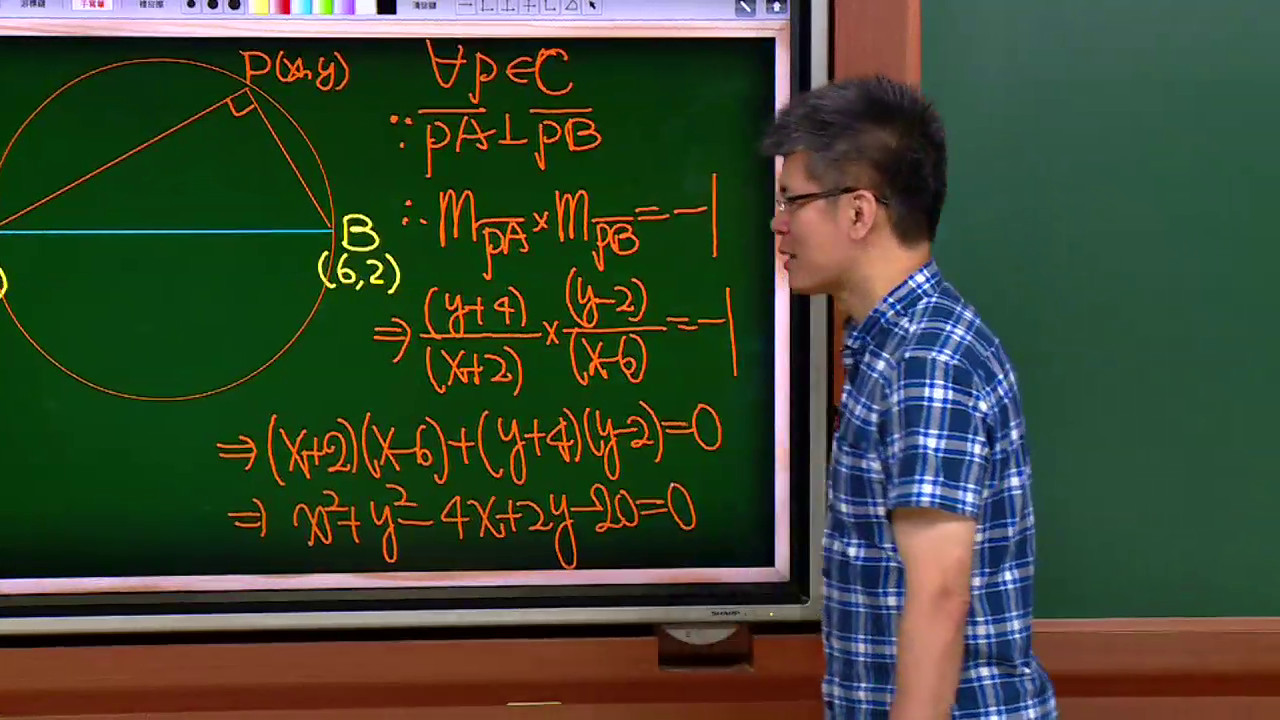 P(x,y)
∀p∈C
∵ \overline{pA}⊥\overline{pB}
∴ m_{\overline{pA}}×m_{\overline{pB}}=-1
B
(6,2)
)
⇒ \frac{(y+4)}{(x+2)}×\frac{(y-2)}{(x-6)}=-1
⇒(x+2)(x-6)+(y+4)(y-2)=0
⇒ x²+y²-4x+2y-20=0
SHARP